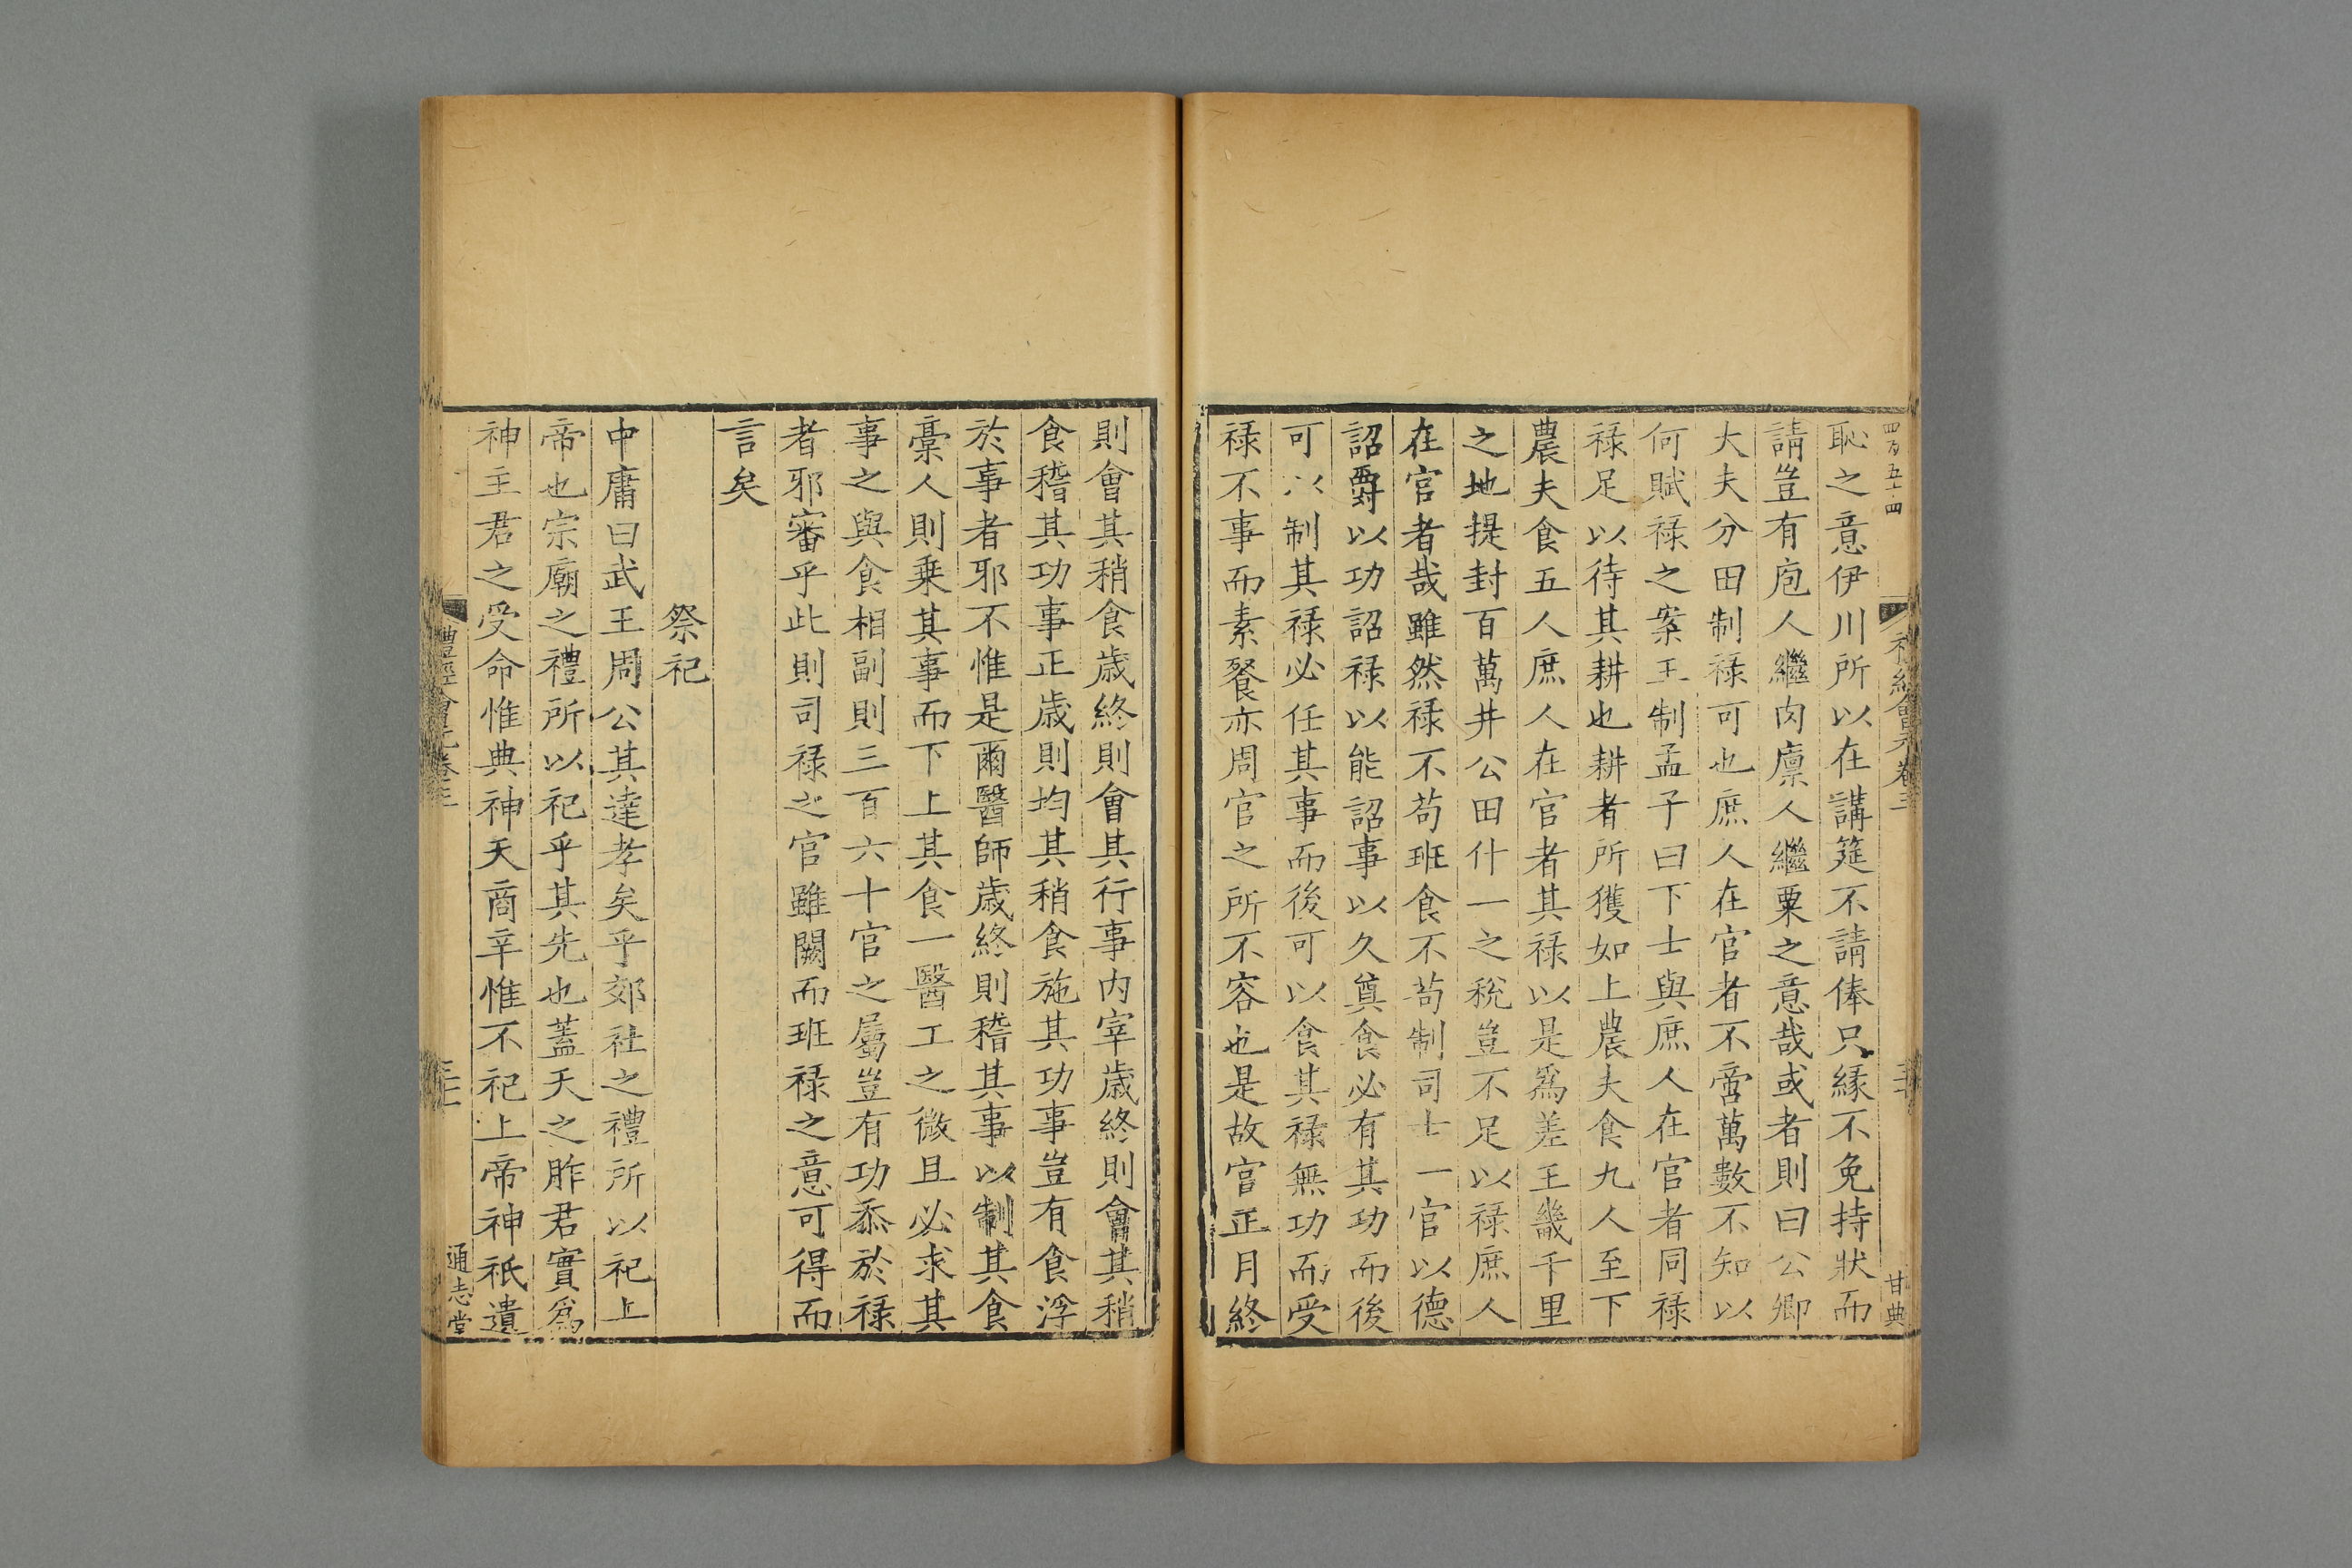 四百五十四
恥之意伊川所以在講筵不請俸只縁不免持狀而
請豈有庖人繼肉廪人繼粟之意哉或者則曰公卿
大夫分田制禄可也庶人在官者不啻萬數不知以
何賦禄之案王制孟子曰下士與庶人在官者同禄
禄足以待其耕也耕者所獲如上農夫食九人至下
農夫食五人庶人在官者其禄以是爲差王畿千里
之地提封百萬井公田什一之稅豈不足以禄庶人
在官者哉雖然禄不苟班食不苟制司士一官以德
詔爵以功詔禄以能詔事以久奠食必有其功而後
可以制其禄必任其事而後可以食其禄無功而受
禄不事而素餐亦周官之所不容也是故宫正月終
甘典
則會其稍食歲終則會其行事内宰歲終則會其稍
食稽其功事正歲則均其稍食施其功事豈有食浮
於事者邪不惟是爾醫師歲終則稽其事以制其食
稾人則乗其事而下上其食一醫工之微且必求其
事之與食相副則三百六十官之屬豈有功忝於禄
者邪審乎此則司禄之官雖闕而班禄之意可得而
言矣
祭祀
中庸曰武王周公其達孝矣乎郊社之禮所以祀上
帝也宗廟之禮所以祀乎其先也蓋天之胙君實爲
神主君之受命惟典神天商辛惟不祀上帝神祇遺
禮經會元卷三
通志堂